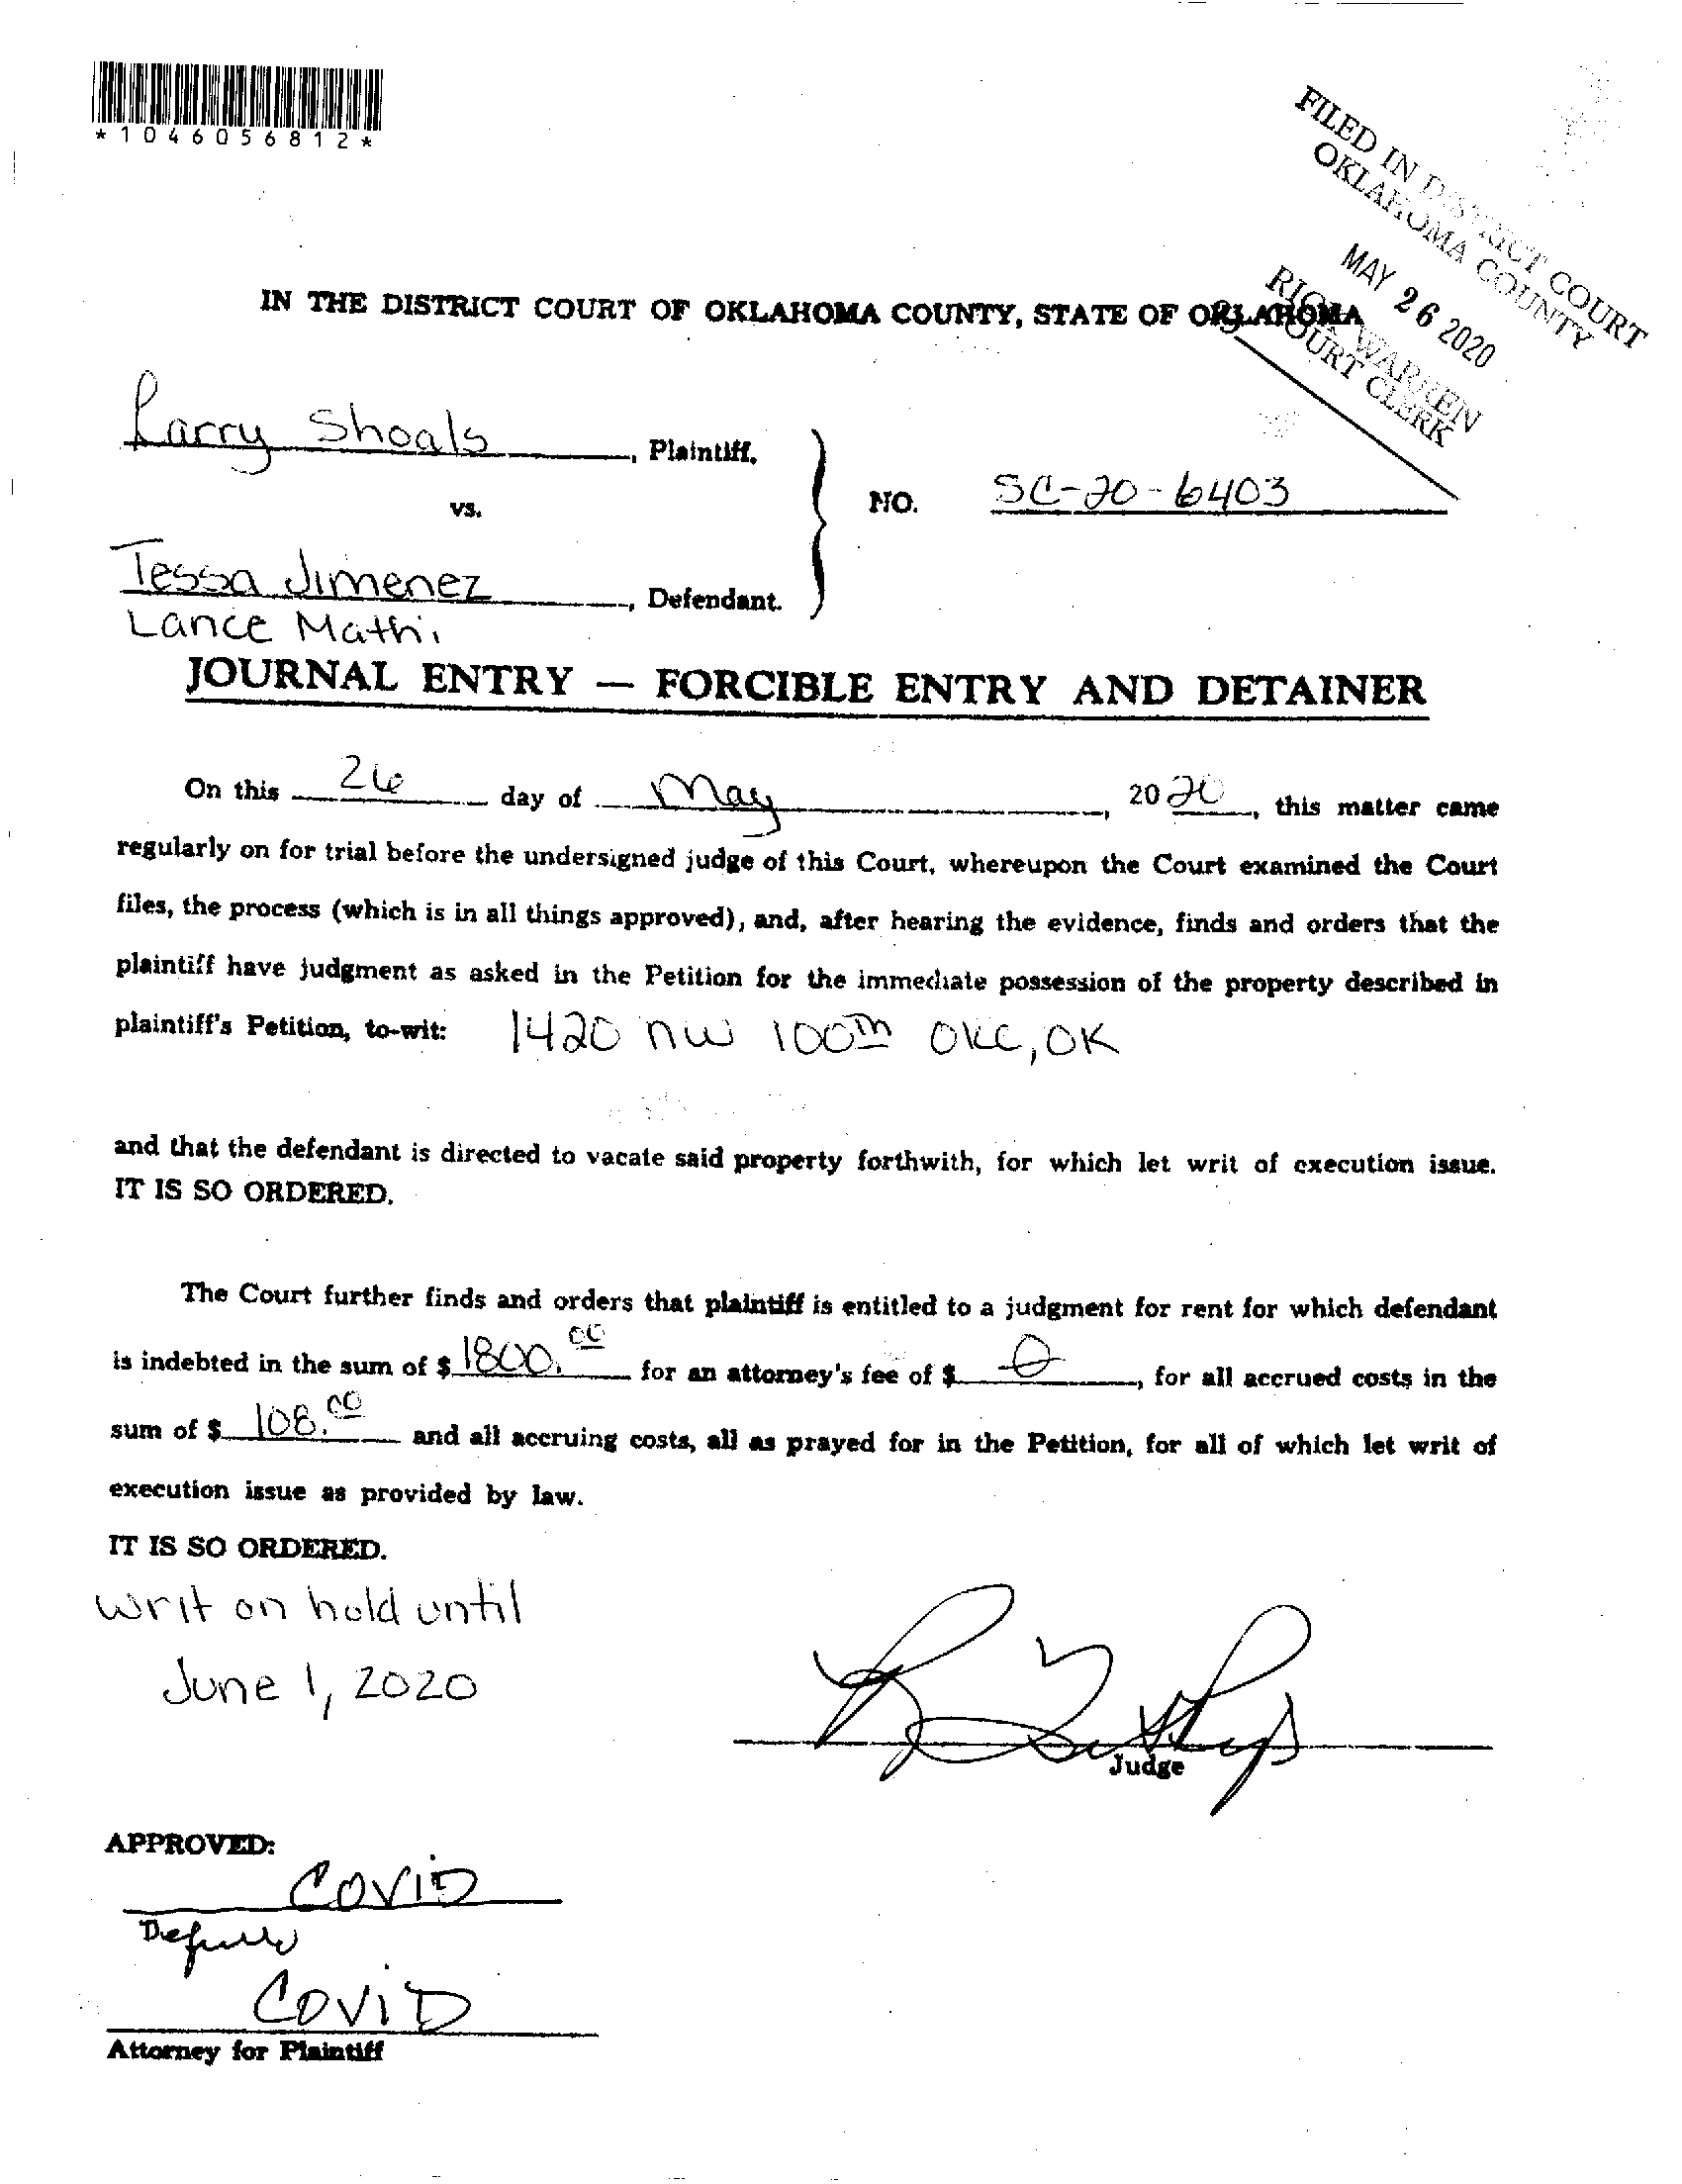 *1046056812*
FILED IN DISTRICT COURT
OKLAHOMA COUNTY
MAY 26 2020
RICK WARREN
COURT CLERK
IN THE DISTRICT COURT OF OKLAHOMA COUNTY, STATE OF OKLAHOMA
Larry Shoals, Plaintiff,
vs.
NO. SC-20-6403
Tessa Jimenez, Defendant.
Lance Mathi
JOURNAL ENTRY — FORCIBLE ENTRY AND DETAINER
On this 26 day of May, 2020, this matter came
regularly on for trial before the undersigned judge of this Court, whereupon the Court examined the Court
files, the process (which is in all things approved), and, after hearing the evidence, finds and orders that the
plaintiff have judgment as asked in the Petition for the immediate possession of the property described in
plaintiff's Petition, to-wit: 1420 NW 100th OKC, OK
and that the defendant is directed to vacate said property forthwith, for which let writ of execution issue.
IT IS SO ORDERED.
The Court further finds and orders that plaintiff is entitled to a judgment for rent for which defendant
is indebted in the sum of $ 1800.00 for an attorney's fee of $ 0, for all accrued costs in the
sum of $ 108.00 and all accruing costs, all as prayed for in the Petition, for all of which let writ of
execution issue as provided by law.
IT IS SO ORDERED.
writ on hold until
June 1, 2020
Judge
APPROVED:
COVID
COVID
Attorney for Plaintiff